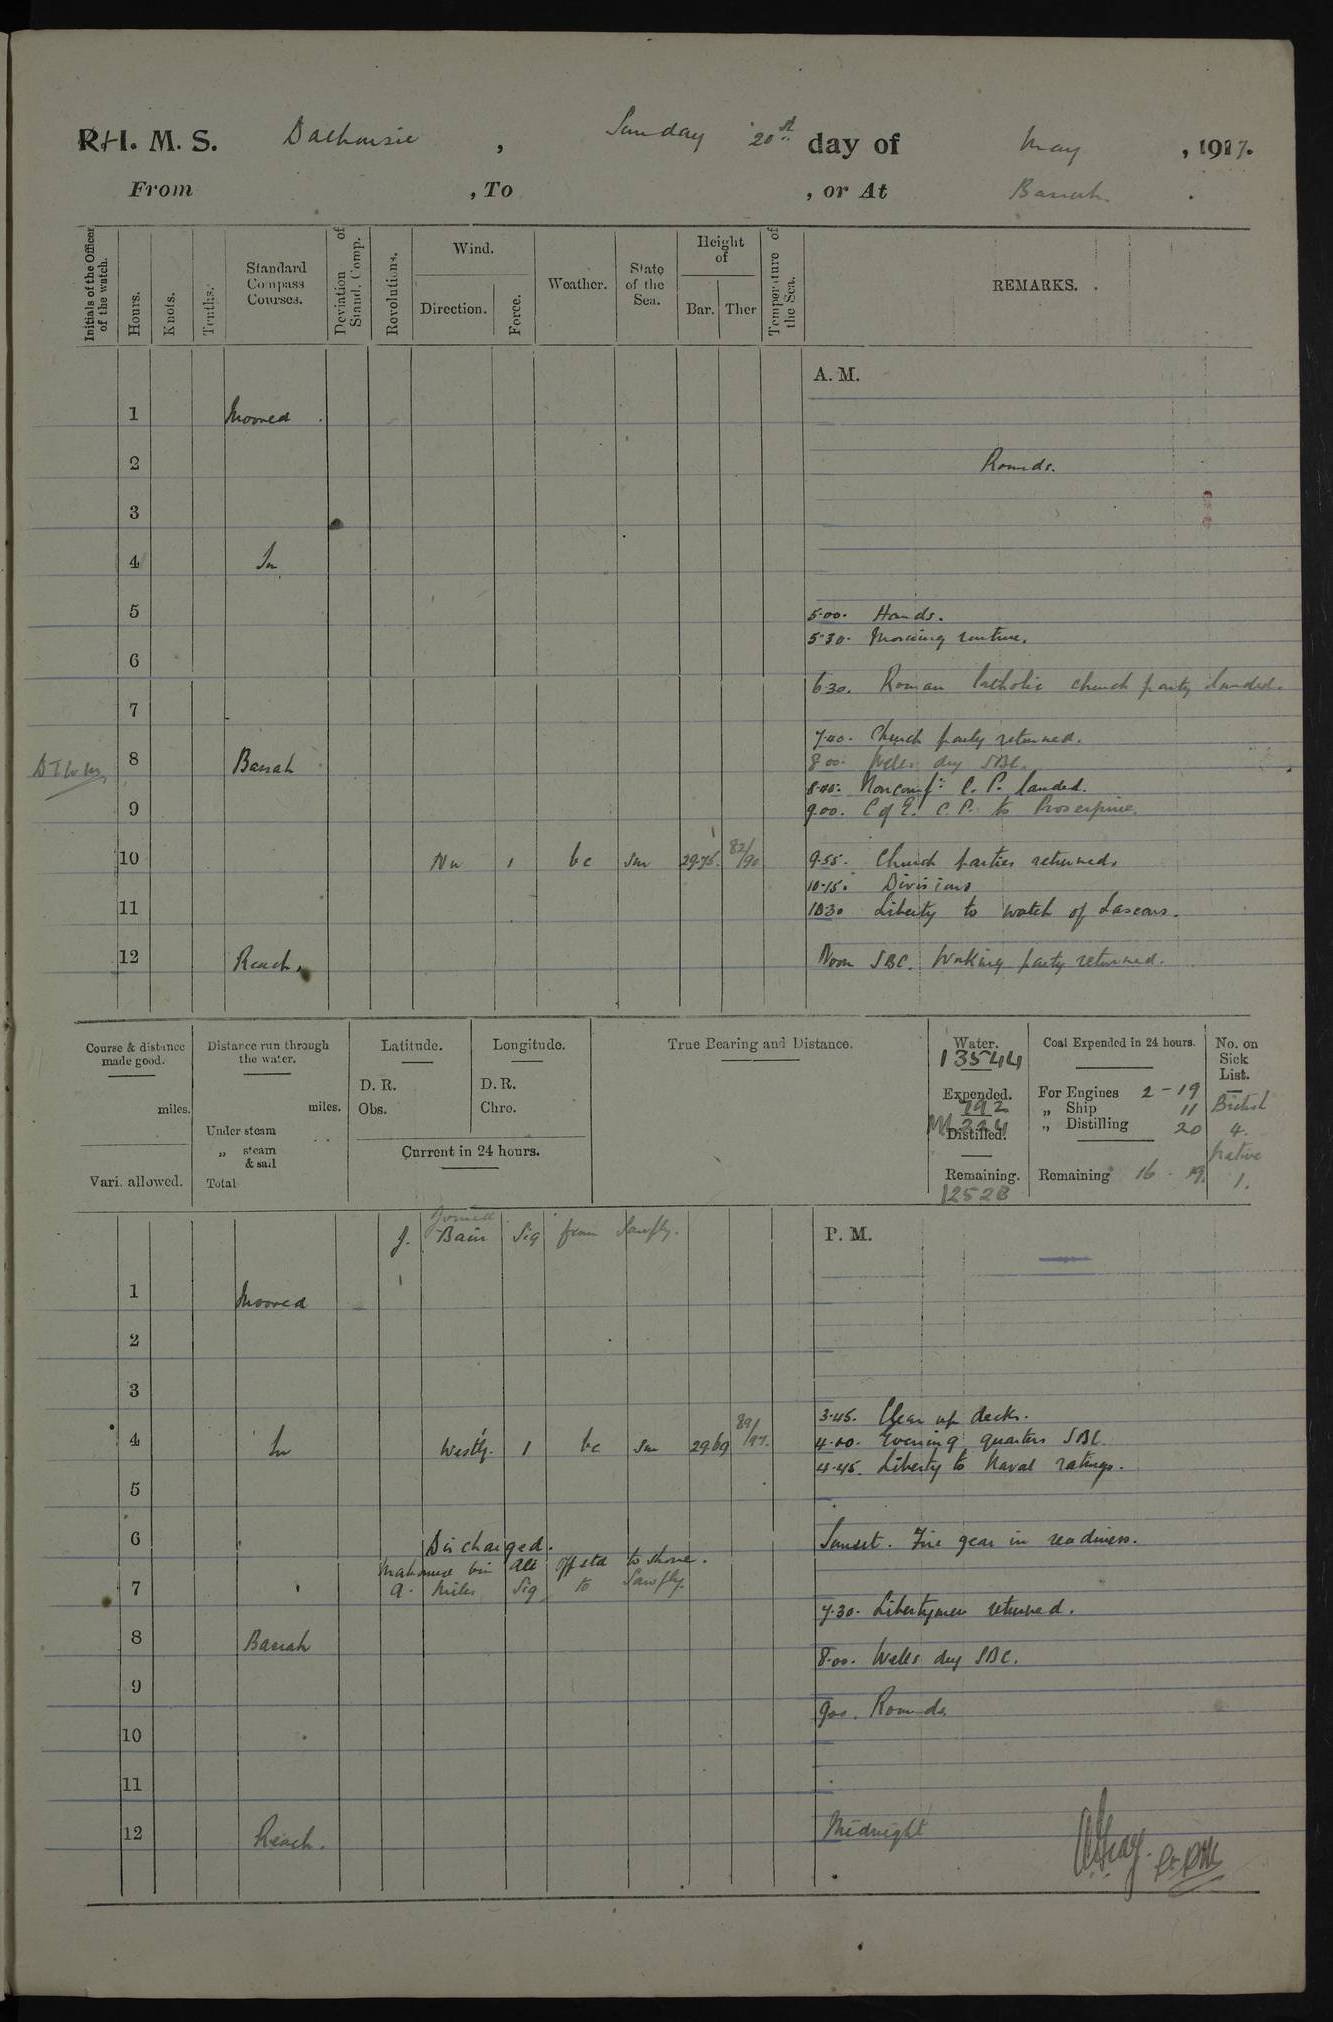 R. I. M. S. Dalhousie , Sunday 20st day of May , 1917.
From , To , or At Basrah.
Initials of the Officer of the watch.
Hours.
Knots.
Tenths.
Standard Compass Courses.
Deviation of Stand. Comp.
Revolutions.
Wind.
Direction.
Force.
Weather.
State of the Sea.
Height of
Bar. Ther
Temperature of the Sea.
REMARKS.
A. M.
1 Moored
2 Rounds.
3
4 In
5 5.00. Hands.
5.30. Morning routine.
6
6.30. Roman Catholic church party landed.
7
7.40. Church party returned.
8 Basrah 8.00. Wells dry SBC.
8.40. Nonconf: C. P. landed.
9 9.00. C of E. C. P. to Proserpine.
10 NW 1 bc Sm 29.75. 82/90 9.55. Church parties returned.
10.15. Divisions
11 10.30 Liberty to watch of Lascars.
12 Reach. Noon SBC. Working party returned.
Course & distance made good.
miles.
Vari. allowed.
Distance run through the water.
miles.
Under steam
„ steam & sail
Total
Latitude.
D. R.
Obs.
Longitude.
D. R.
Chro.
Current in 24 hours.
True Bearing and Distance.
Water.
13544
Expended.
792
Distilled.
Remaining.
12528
Coal Expended in 24 hours.
For Engines 2 - 19
„ Ship 11
„ Distilling 20
Remaining 16 - 19.
No. on Sick List.
British
4.
Native
1.
Joined
J. Bain Sig from Sawfly.
P. M.
1 Moored
2
3
3.45. Clear up decks.
4 In Westly. 1 bc Sm 29.69 89/97. 4.00. Evening quarters SBC.
4.45. Liberty to Naval ratings.
5
6 Discharged. Sunset. Fire gear in readiness.
bin Ali Off std to shore.
7 A. Miles Sig to Sawfly.
7.30. Libertymen returned.
8 Basrah
8.00. Wells dry SBC.
9
9.00. Rounds.
10
11
12 Reach. Midnight